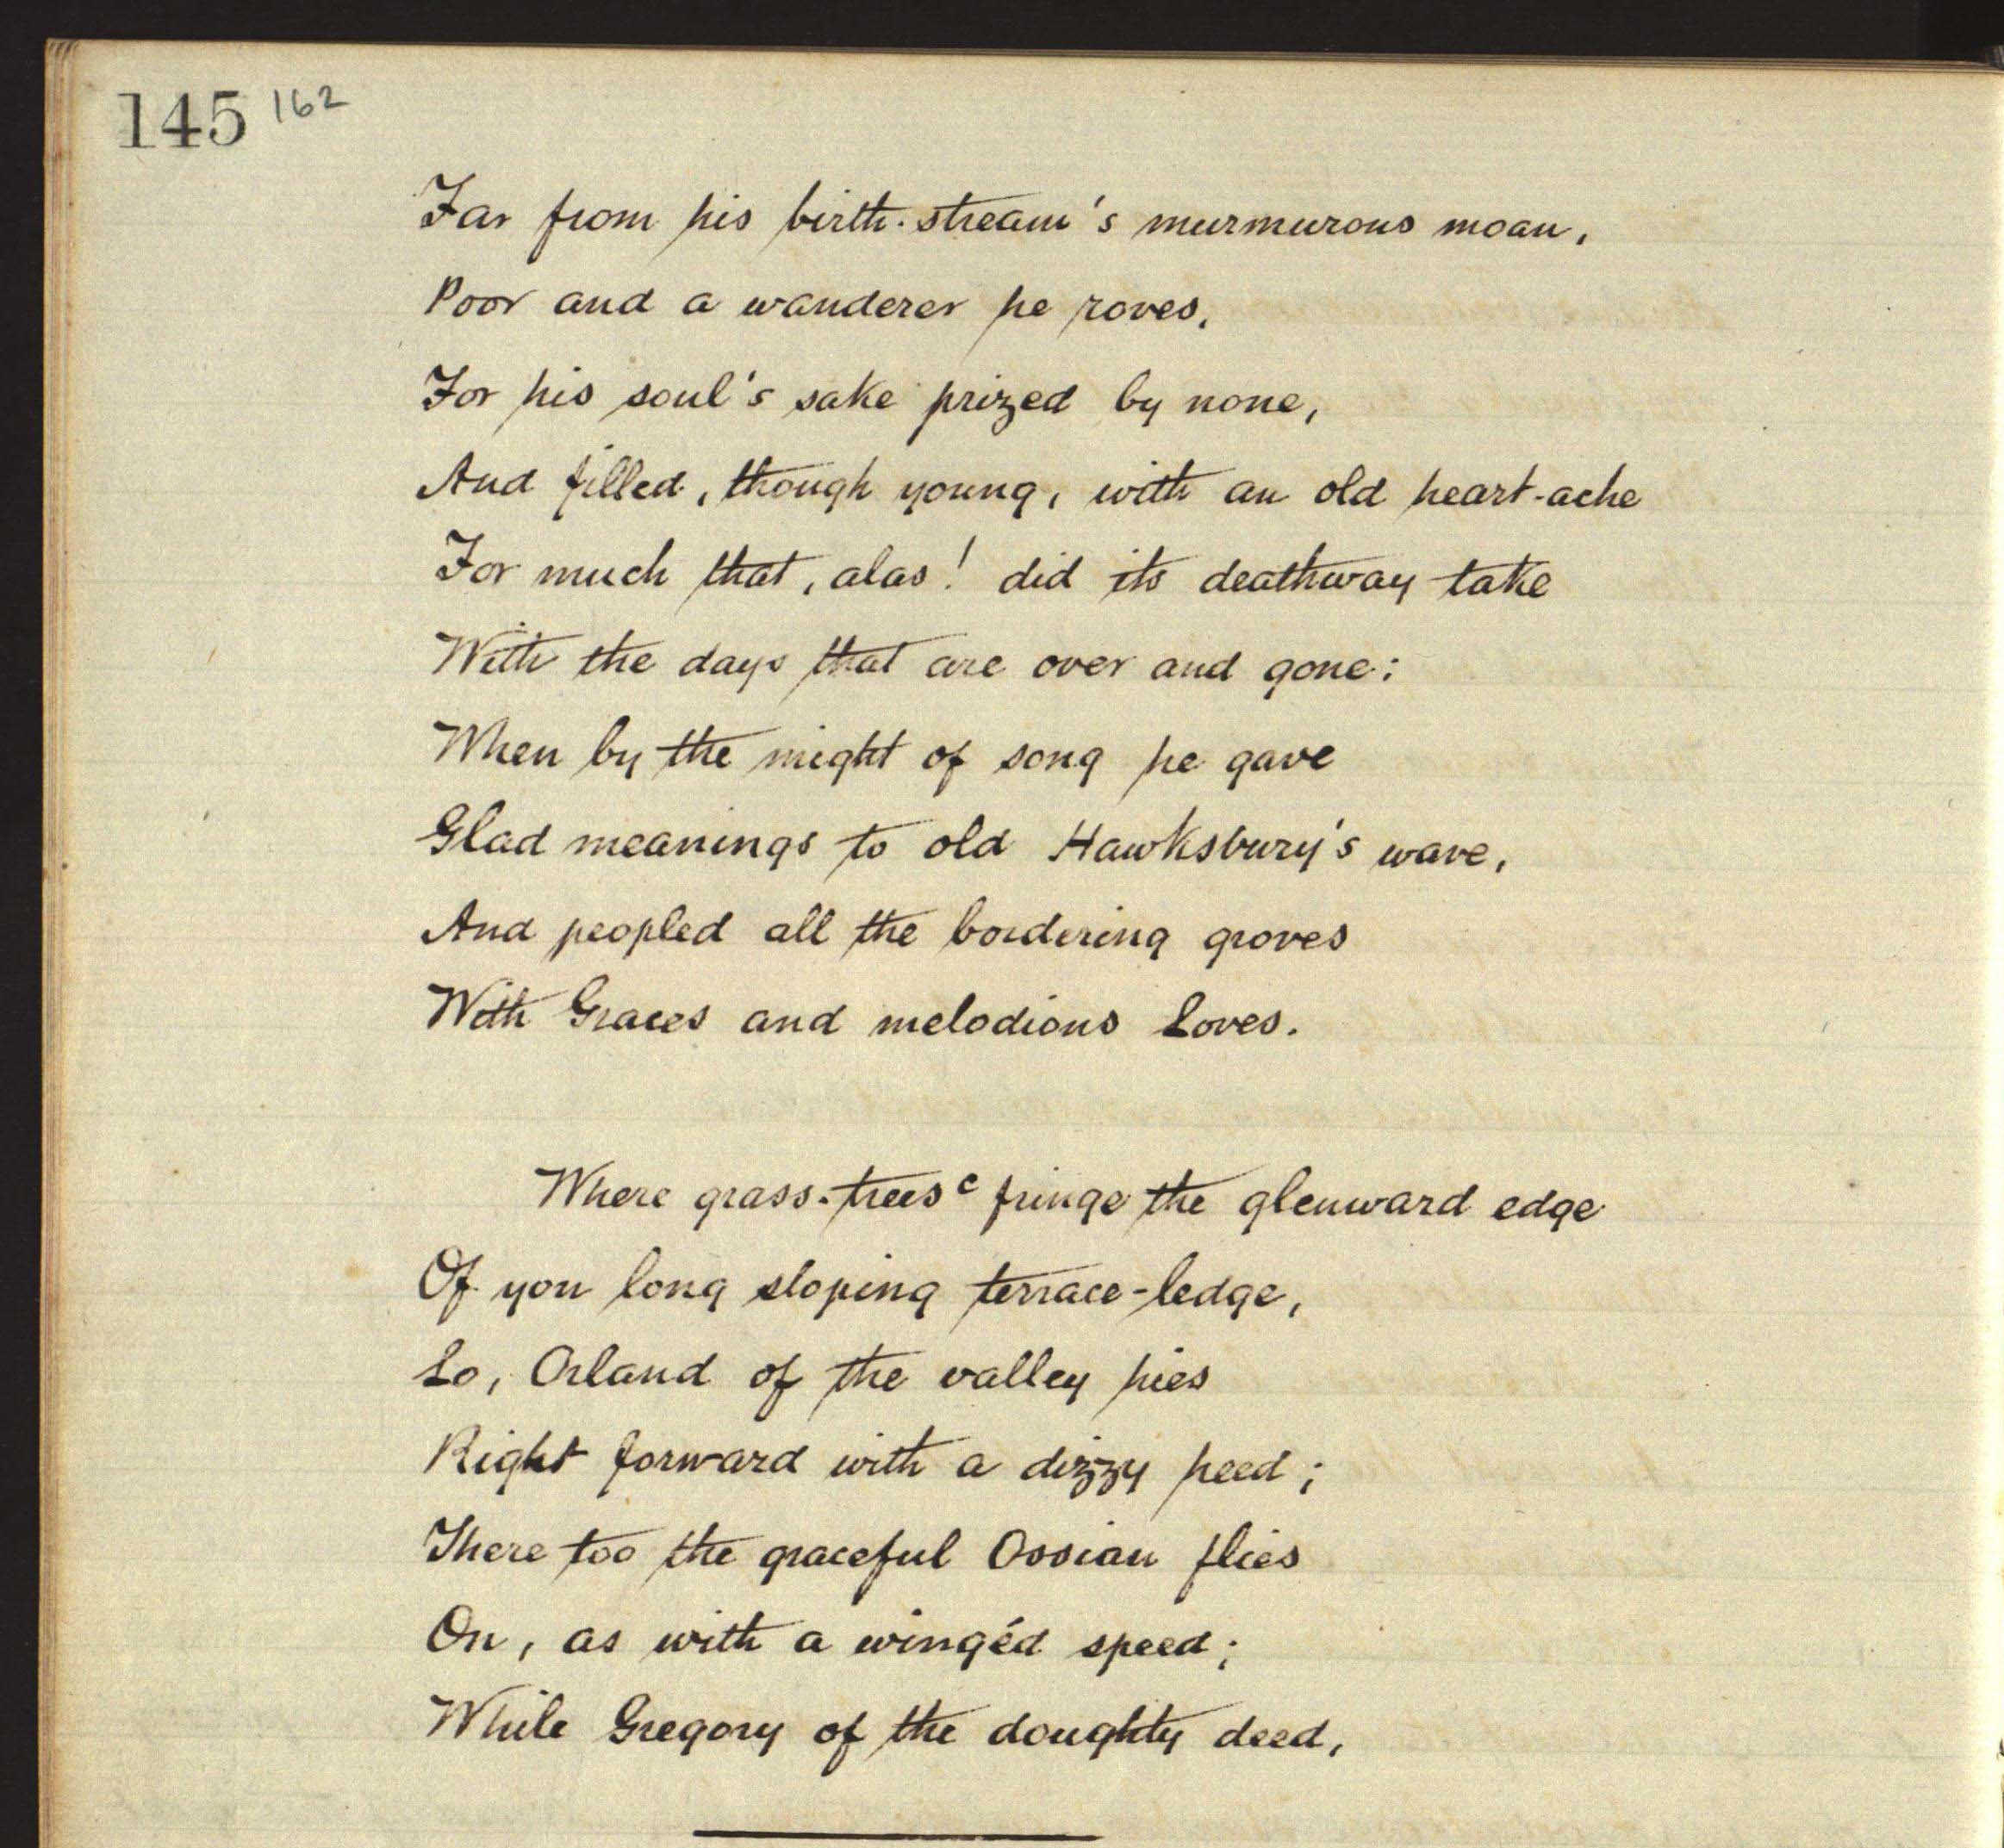 145 162
Far from his birth-stream's murmurous moan,
Poor and a wanderer he roves,
For his soul's sake prized by none,
And filled, though young, with an old heart-ache
For much that, alas! did its deathway take
With the days that are over and gone:
When by the might of song he gave
Glad meanings to old Hawksbury's wave,
And peopled all the bordering groves
With Graces and melodious Loves.
Where grass-trees c fringe the glenward edge
Of yon long sloping terrace-ledge,
Lo, Orland of the valley hies
Right forward with a dizzy heed;
There too the graceful Ossian flies
On, as with a wingéd speed;
While Gregory of the doughty deed,